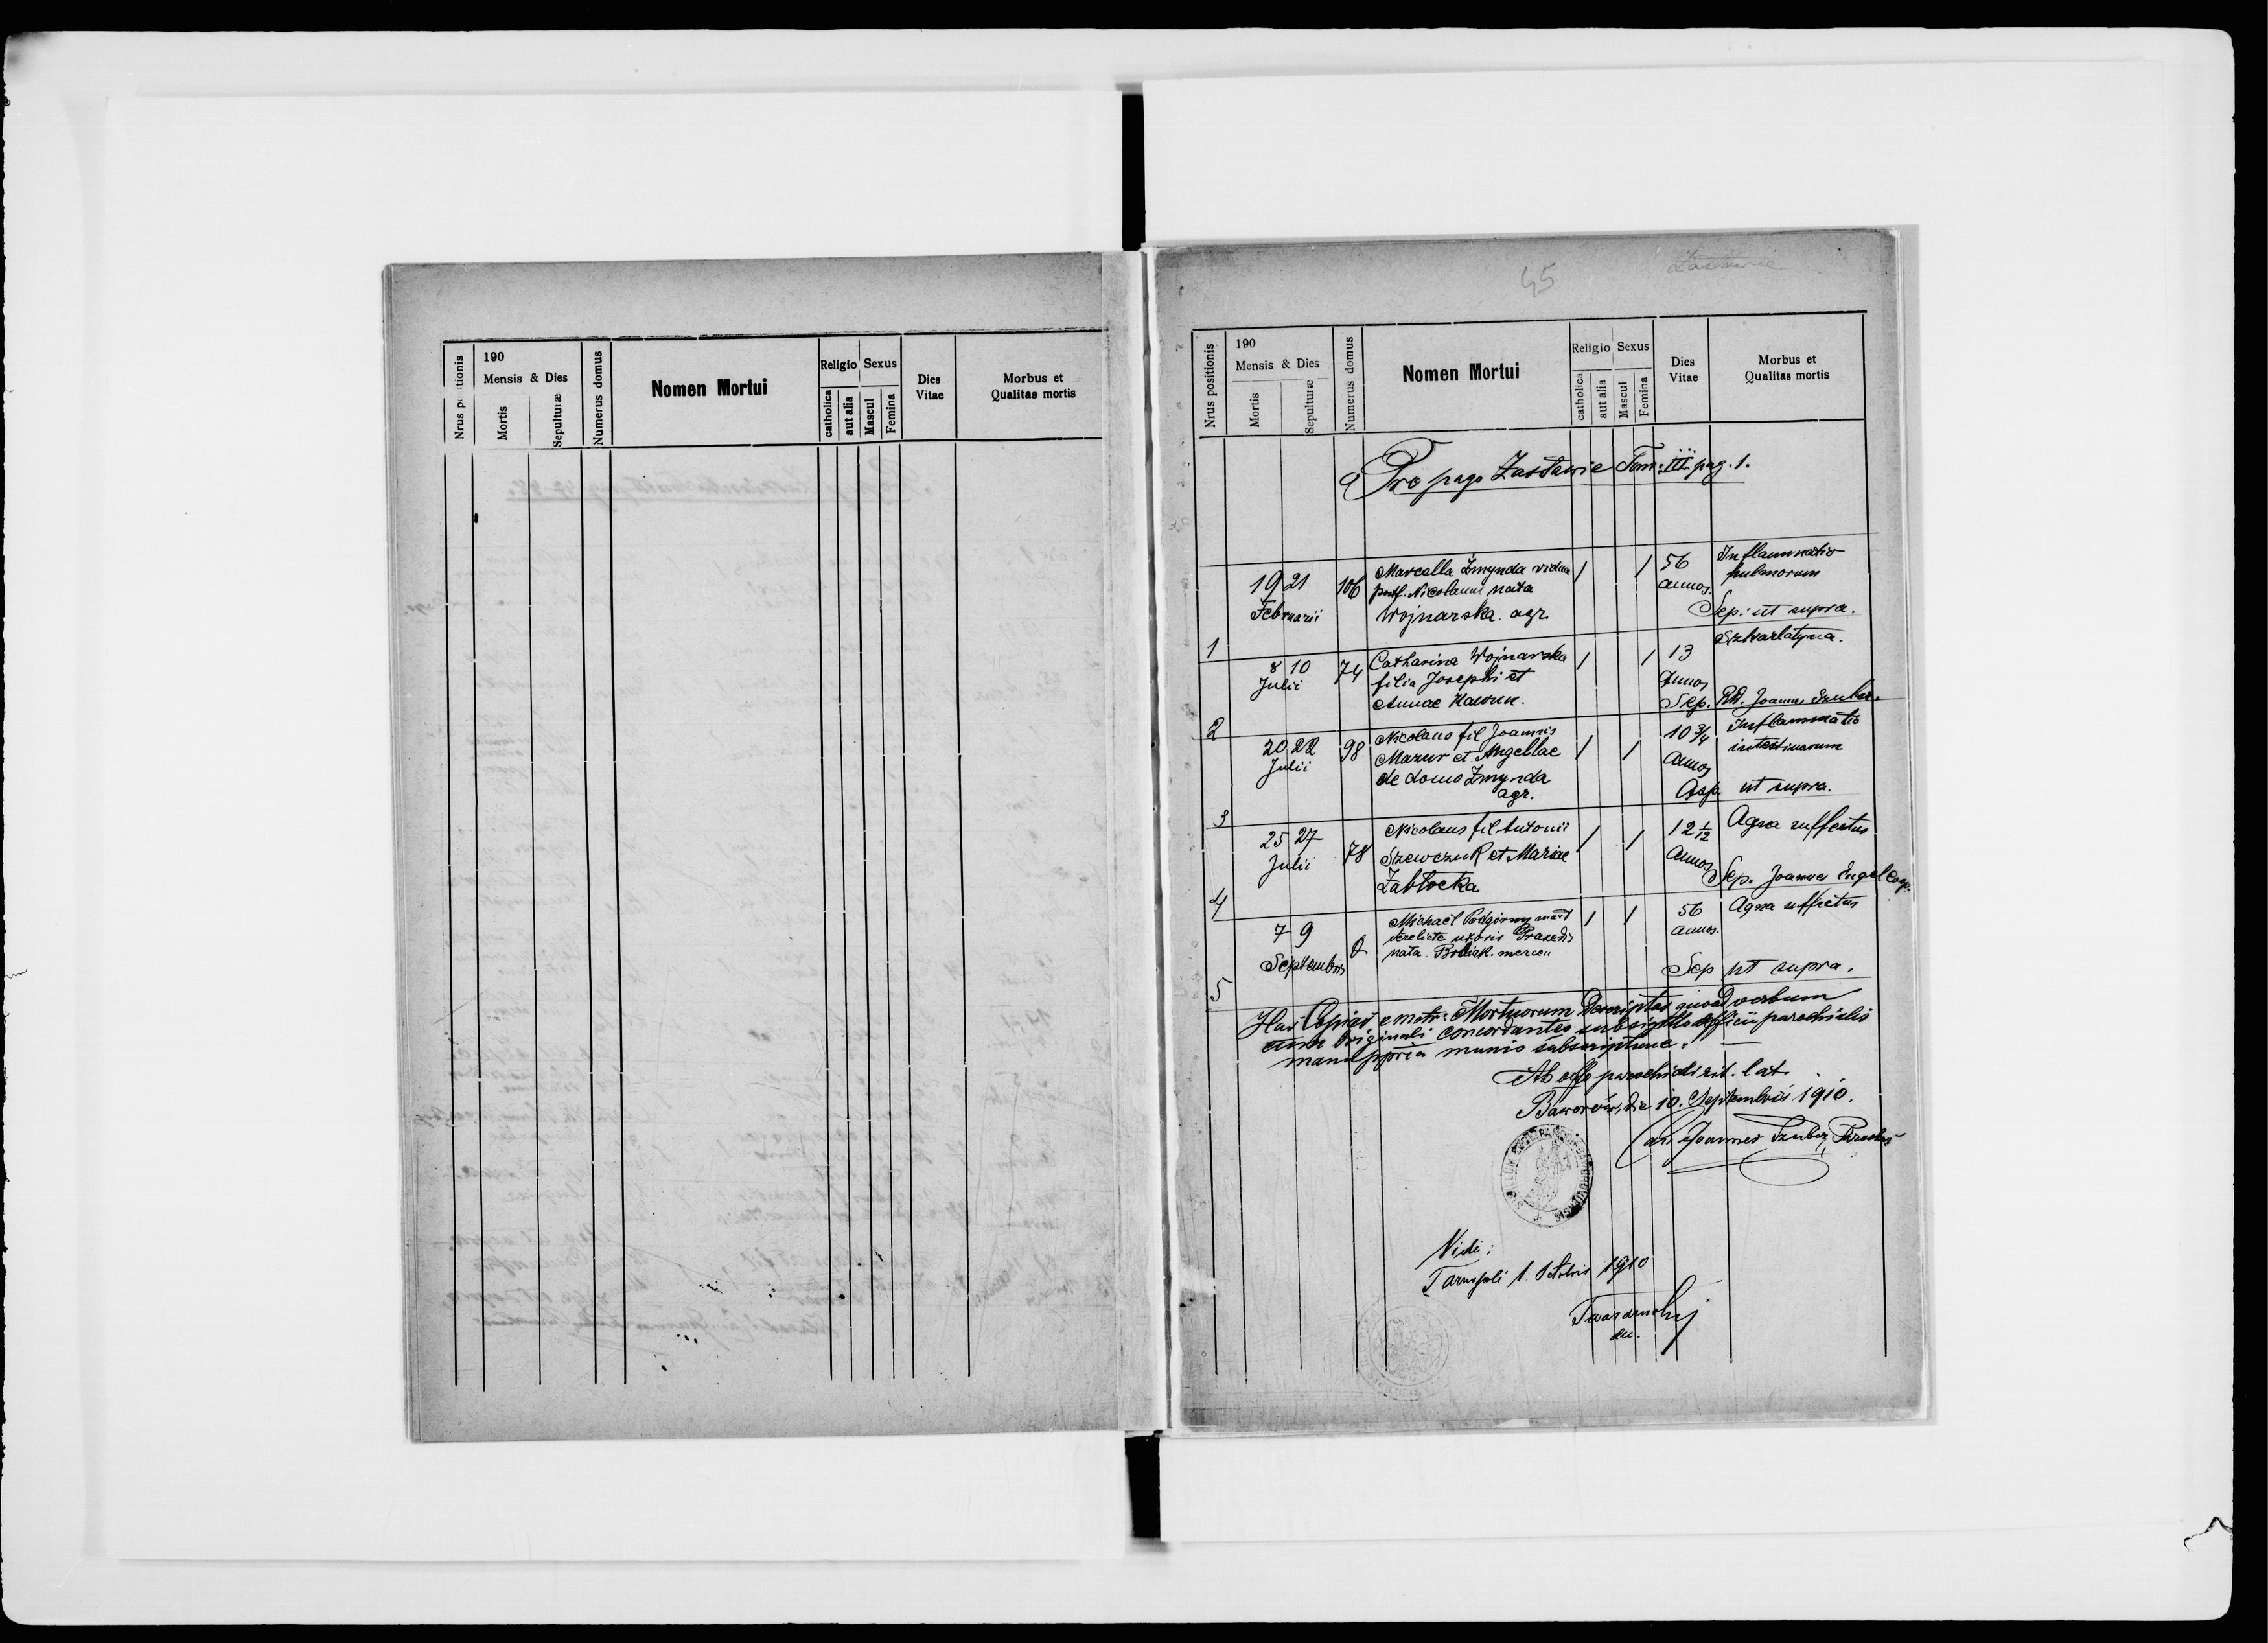 190
Mensis & Dies
Mortis
Sepulturæ
Numerus domus
Nomen Mortui
Religio
Sexus
catholica
aut alia
Mascul
Femina
Dies
Vitae
Morbus et
Qualitas mortis
45
Zastawie
Nrus positionis
190
Mensis & Dies
Mortis
Sepulturæ
Numerus domus
Nomen Mortui
Religio
Sexus
catholica
aut alia
Mascul
Femina
Dies
Vitae
Morbus et
Qualitas mortis
Pro pago Zastawie Tom: III. pag. 1.
1
19 21
Februarii
106
Marcella Żmynda vidua
post. Nicolaum nata
Wojnarska. agr.
1 1
56
annos.
Inflammatio
pulmorum
Sep: ut supra.
2
8 10
Julii
74
Catharina Wojnarska
filia Josephi et
Annae
1 1
13
annos
Szkarlatyna.
Sep. Joannes Szuber.
3
20 22
Julii
98
Nicolaus fil Joannis
Mazur et Angellae
de domo Żmynda
agr.
1 1
10 3/4
annos
Inflammatio
intestinarum
ut supra.
4
25 27
Julii
78
Nicolaus fil Antonii
Szewczuk et Mariae
Zabłocka
1 1
12 1/12
annos
Aqua suffectus
Sep. Joannes Engel Coop.
5
7 9
Septembris
Michaël Podgórny
derelicta uxoris Praxedis
nata.
1 1
56
annos.
Aqua suffectus
Sep ut supra.
Has Copias e metr: Mortuorum Descriptas quoad verbum
cum Originali concordantes sub sigillo officii parochialis
manu ppria munio subscriptione.
Ab offo parochiali rit. lat.
Baworów, die 10. Septembris 1910.
Joannes Szuber, Parochus
Vidi:
Tarnopoli 1 Octobris 1910